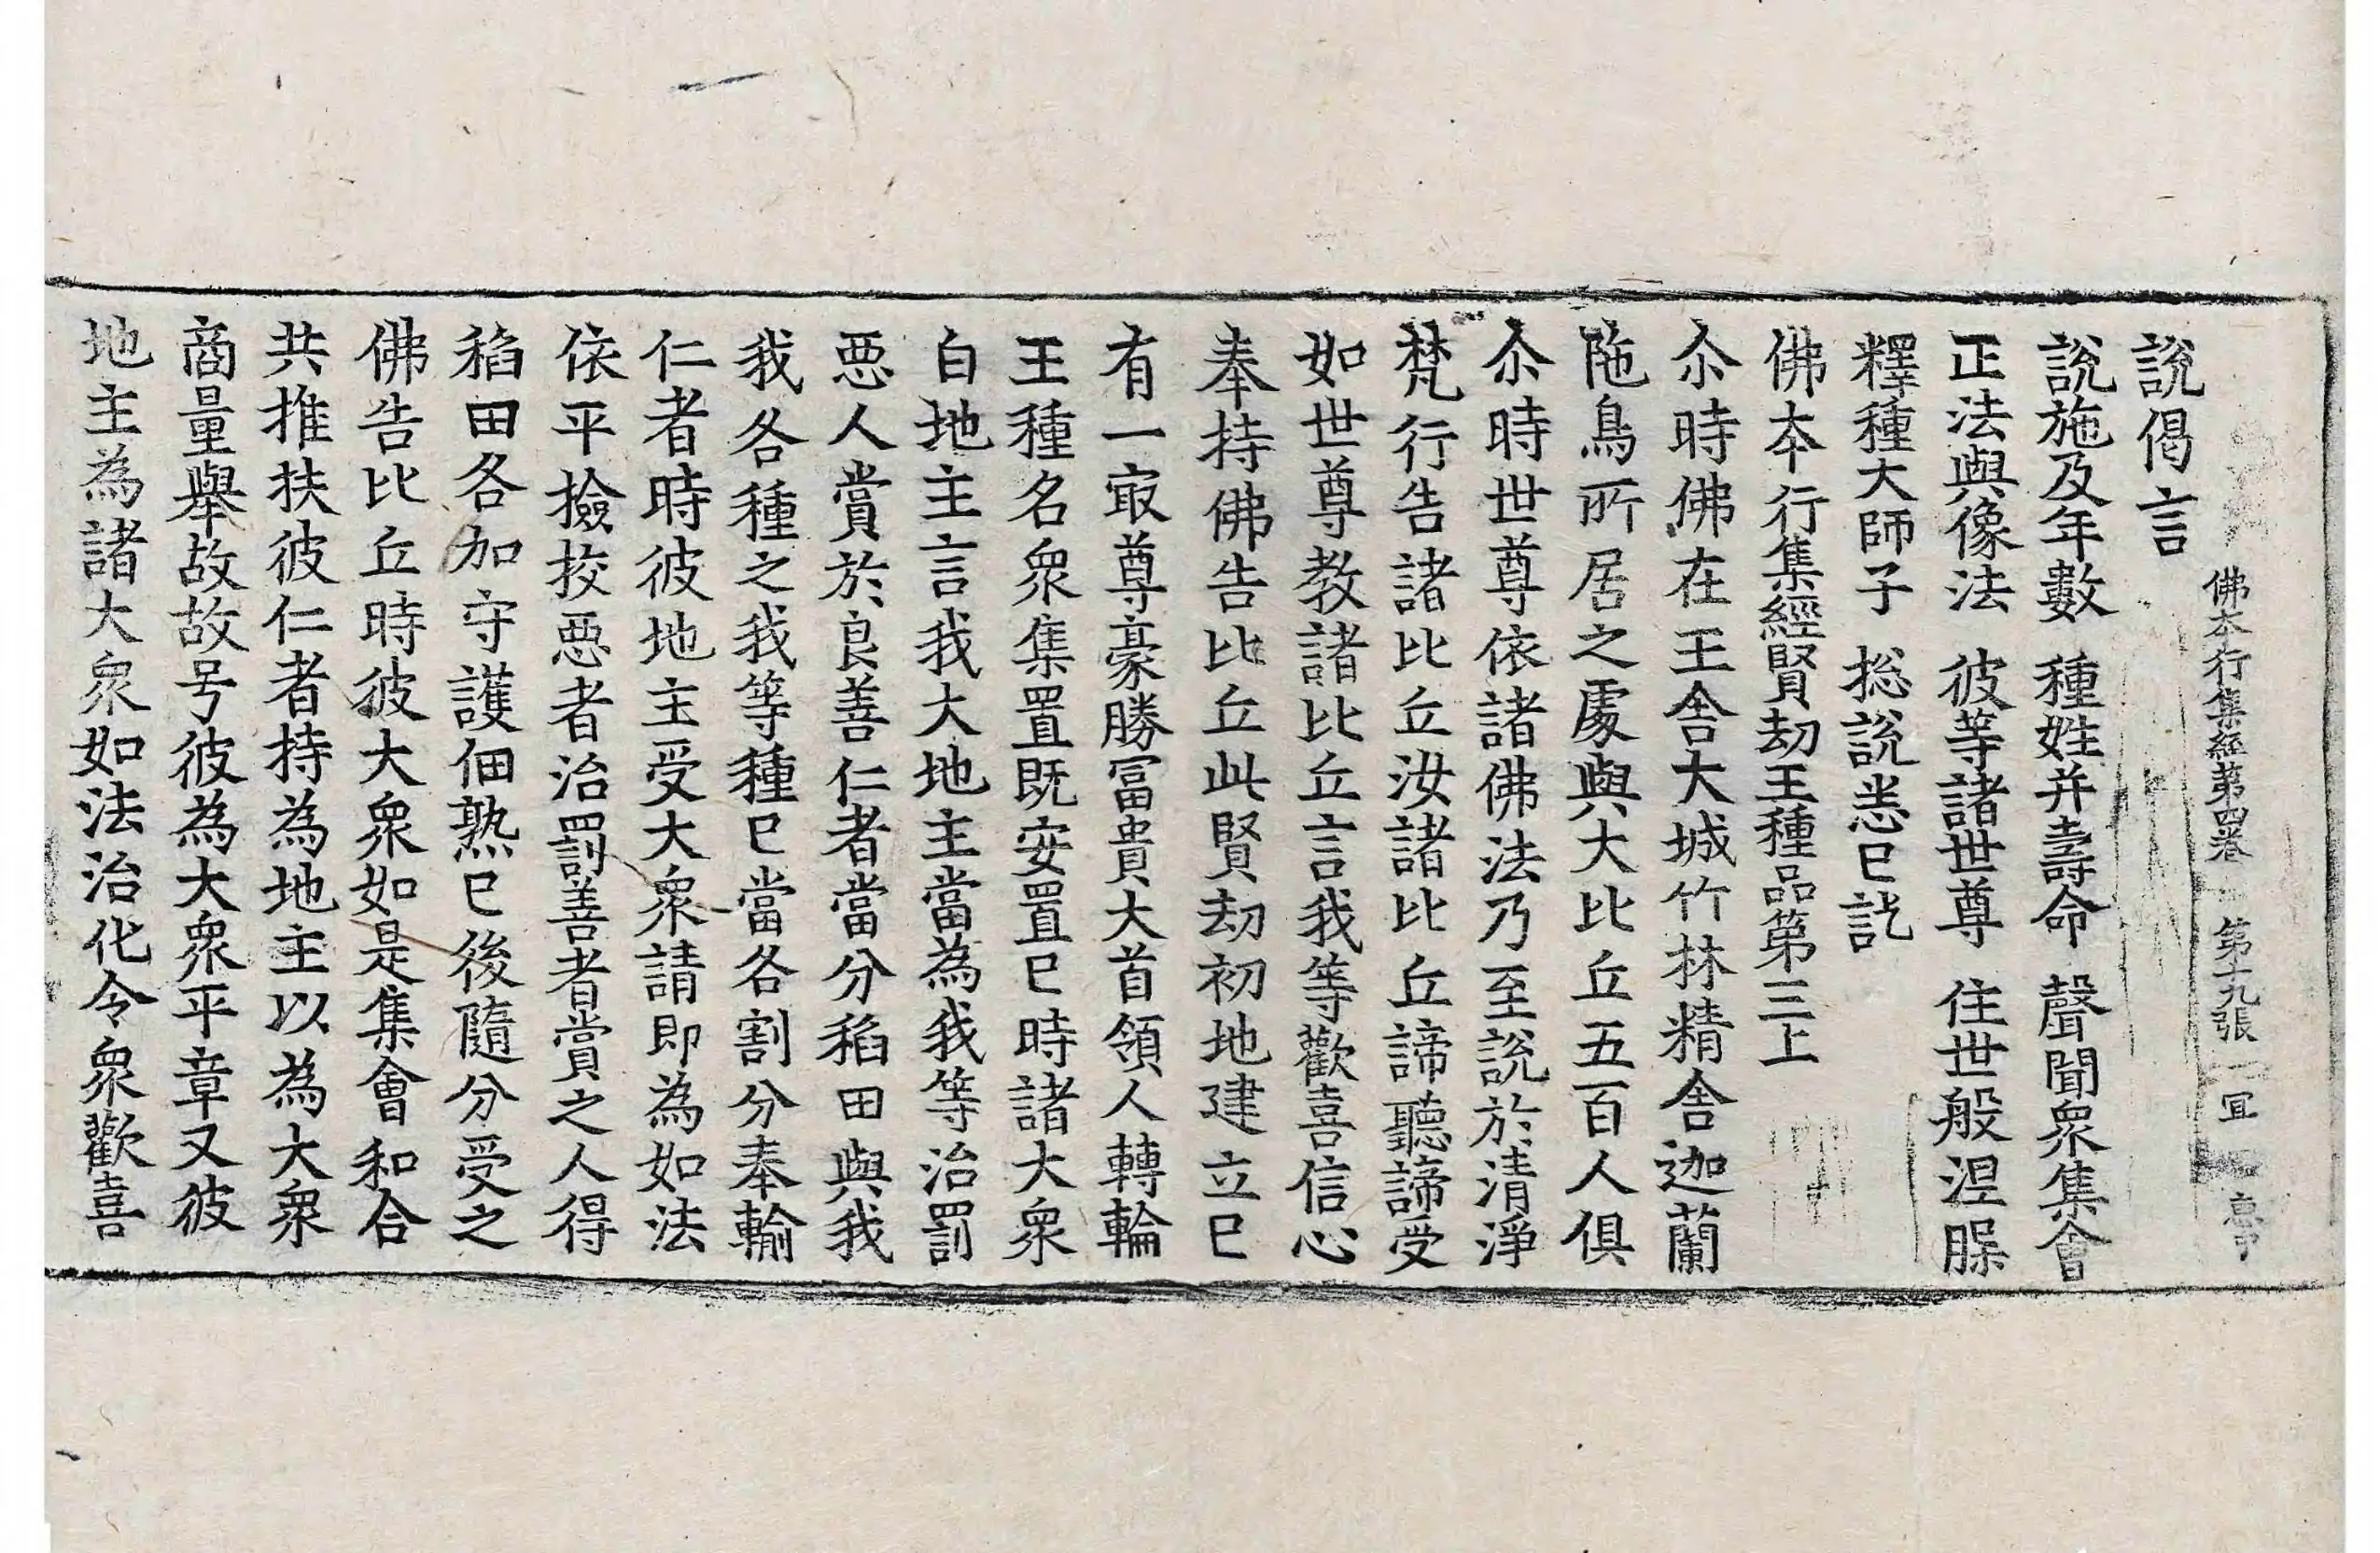 佛本行集經第四卷 第十九張 冝
說偈言
說施及年數 種姓并壽命 聲聞衆集會
正法與像法 彼等諸世尊 住世般涅槃
釋種大師子 捴說悉已訖
佛本行集經賢劫王種品第三上
尒時佛在王舍大城竹林精舍迦蘭
陁鳥所居之處與大比丘五百人俱
尒時世尊依諸佛法乃至說於清淨
梵行告諸比丘汝諸比丘諦聽諦受
如世尊教諸比丘言我等歡喜信心
奉持佛告比丘此賢劫初地建立已
有一㝡尊豪勝冨貴大首領人轉輪
王種名衆集置既安置已時諸大衆
白地主言我大地主當為我等治罰
惡人賞於良善仁者當分稻田與我
我各種之我等種已當各割分奉輸
仁者時彼地主受大衆請即為如法
依平撿挍惡者治罰善者賞之人得
稻田各加守護佃熟已後隨分受之
佛告比丘時彼大衆如是集會和合
共推扶彼仁者持為地主以為大衆
商量舉故故号彼為大衆平章又彼
地主為諸大衆如法治化令衆歡喜